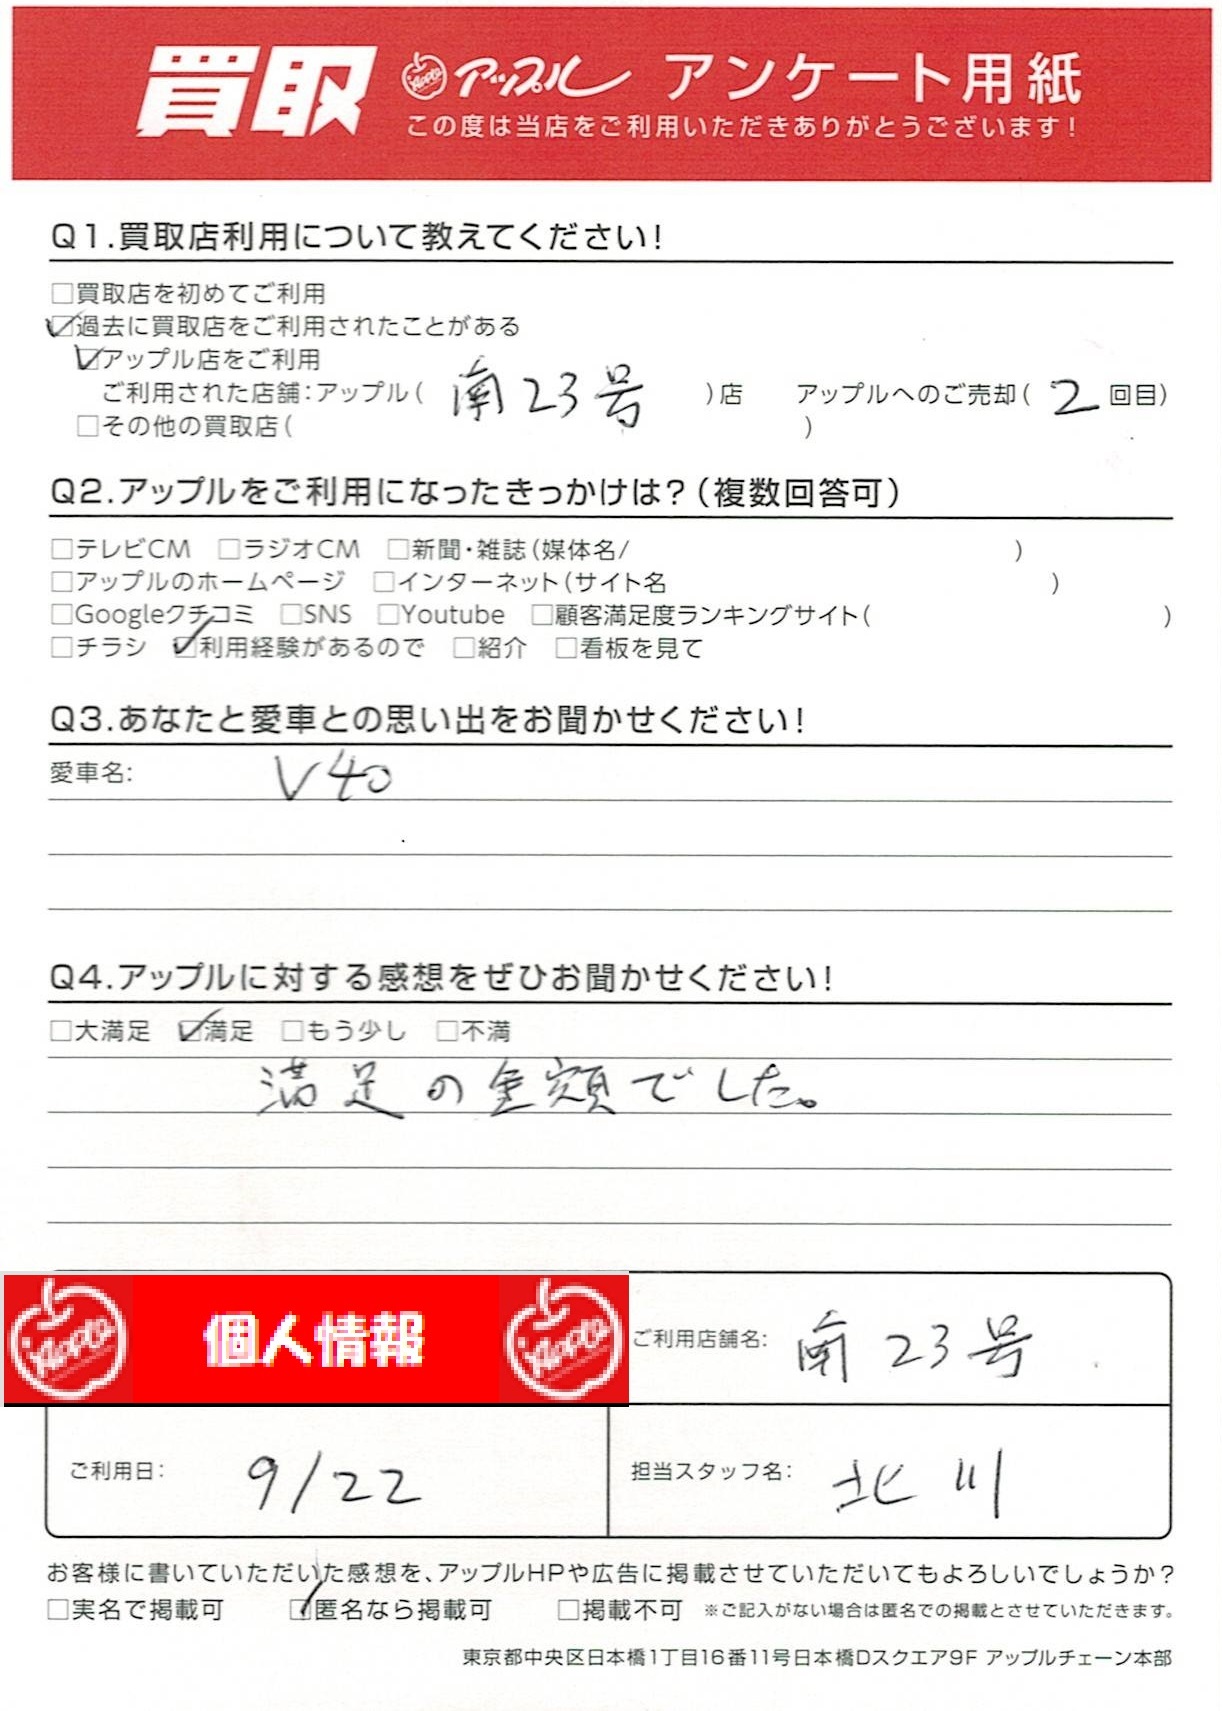 買取 Apple アップル アンケート用紙
この度は当店をご利用いただきありがとうございます!
Q1.買取店利用について教えてください!
□買取店を初めてご利用
☑過去に買取店をご利用されたことがある
☑アップル店をご利用
ご利用された店舗:アップル( 南23号 )店 アップルへのご売却( 2 回目)
□その他の買取店( )
Q2.アップルをご利用になったきっかけは?(複数回答可)
□テレビCM □ラジオCM □新聞・雑誌(媒体名/ )
□アップルのホームページ □インターネット(サイト名 )
□Googleクチコミ □SNS □Youtube □顧客満足度ランキングサイト( )
□チラシ ☑利用経験があるので □紹介 □看板を見て
Q3.あなたと愛車との思い出をお聞かせください!
愛車名: V40
Q4.アップルに対する感想をぜひお聞かせください!
□大満足 ☑満足 □もう少し □不満
満足の金額でした。
Apple 個人情報 Apple
ご利用店舗名: 南23号
ご利用日: 9/22
担当スタッフ名: 北川
お客様に書いていただいた感想を、アップルHPや広告に掲載させていただいてもよろしいでしょうか?
□実名で掲載可 ☑匿名なら掲載可 □掲載不可 ※ご記入がない場合は匿名での掲載とさせていただきます。
東京都中央区日本橋1丁目16番11号日本橋Dスクエア9F アップルチェーン本部